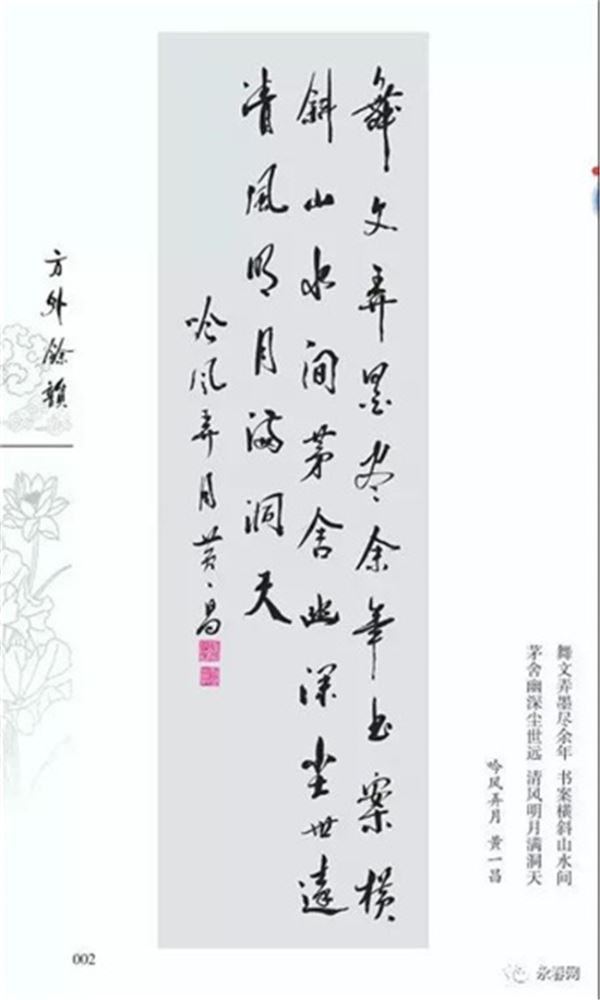 舞文弄墨尽余年书案横
斜山水间茅舍幽深尘世远
清风明月满洞天
吟风弄月黄一昌
方外餘韻
舞文弄墨尽余年 书案横斜山水间
茅舍幽深尘世远 清风明月满洞天
吟风弄月 黄一昌
002
永春网